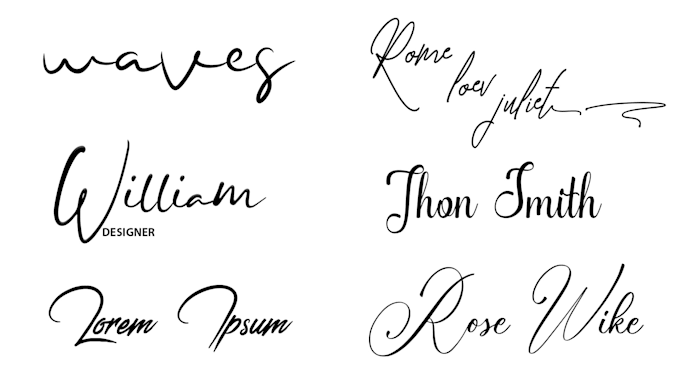 waves
Rome
loev
juliet
William
DESIGNER
Jhon Smith
Lorem Ipsum
Rose Wike